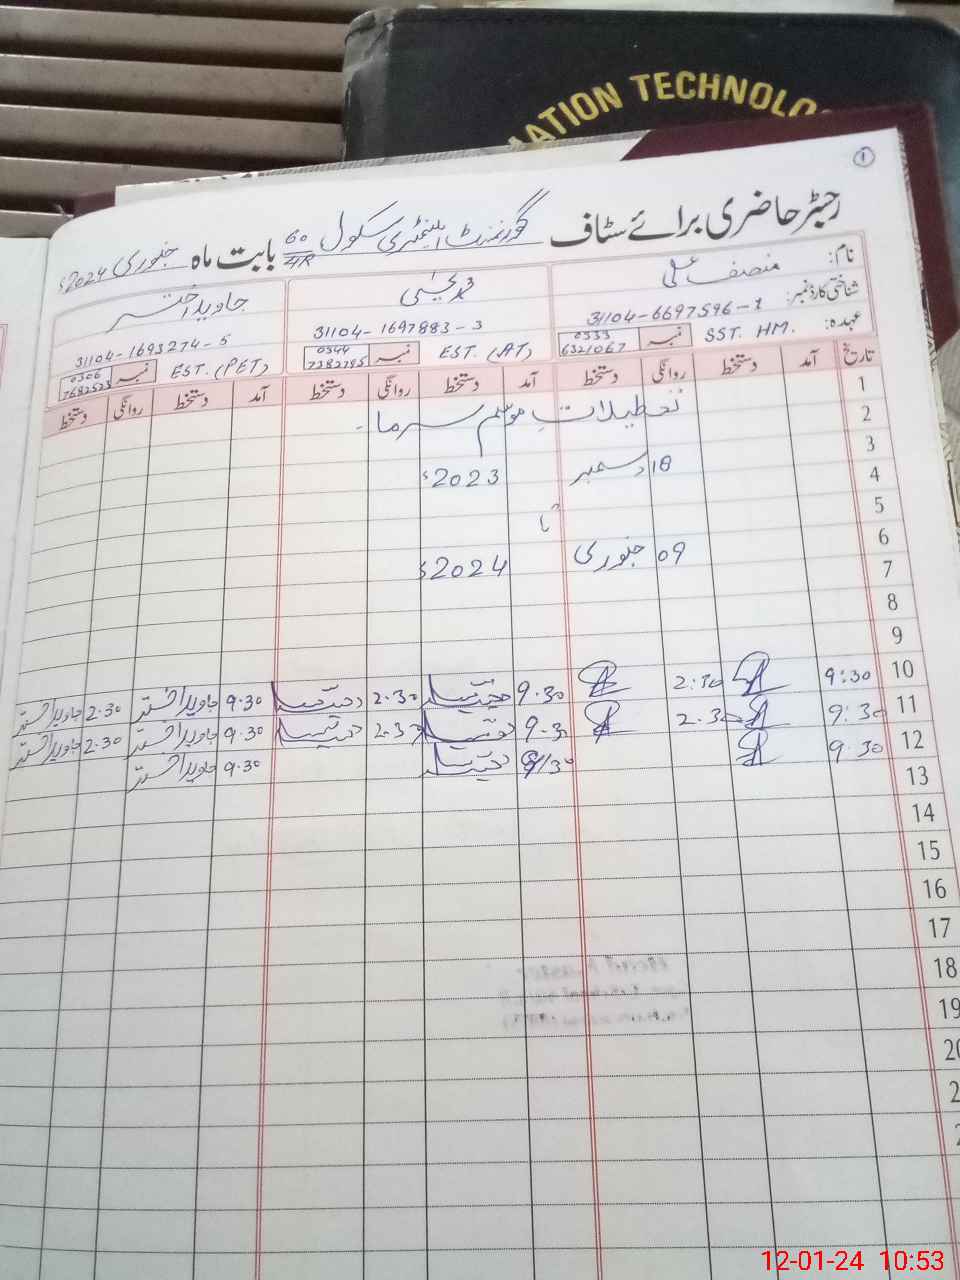 MATION TECHNOLO
1
رجسٹر حاضری برائے سٹاف گورنمنٹ ایلیمنٹری سکول 60/4R بابت ماہ جنوری 2024ء
نام: منصف علی محمد یحییٰ جاوید اختر
شناختی کارڈ نمبر: 31104-6697596-1 31104-1697883-3 31104-1693274-5
عہدہ: SST. HM. نمبر 0333 6321067 EST. (AT) نمبر 0344 7382795 EST. (PET) نمبر 0306 7682523
تاریخ آمد دستخط روانگی دستخط آمد دستخط روانگی دستخط آمد دستخط روانگی دستخط
1
2 تعطیلات موسم سرما۔
3
4 18 دسمبر 2023ء
5
6 تا
7 09 جنوری 2024ء
8
9
10 9:30 2:30 9.30 2.30 9.30 جاوید اختر 2.30 جاوید اختر
11 9:30 2.30 9.30 2.30 9.30 جاوید اختر 2.30 جاوید اختر
12 9.30 9/30 9.30 جاوید اختر
13
14
15
16
17
18
19
20
2
2
12-01-24 10:53